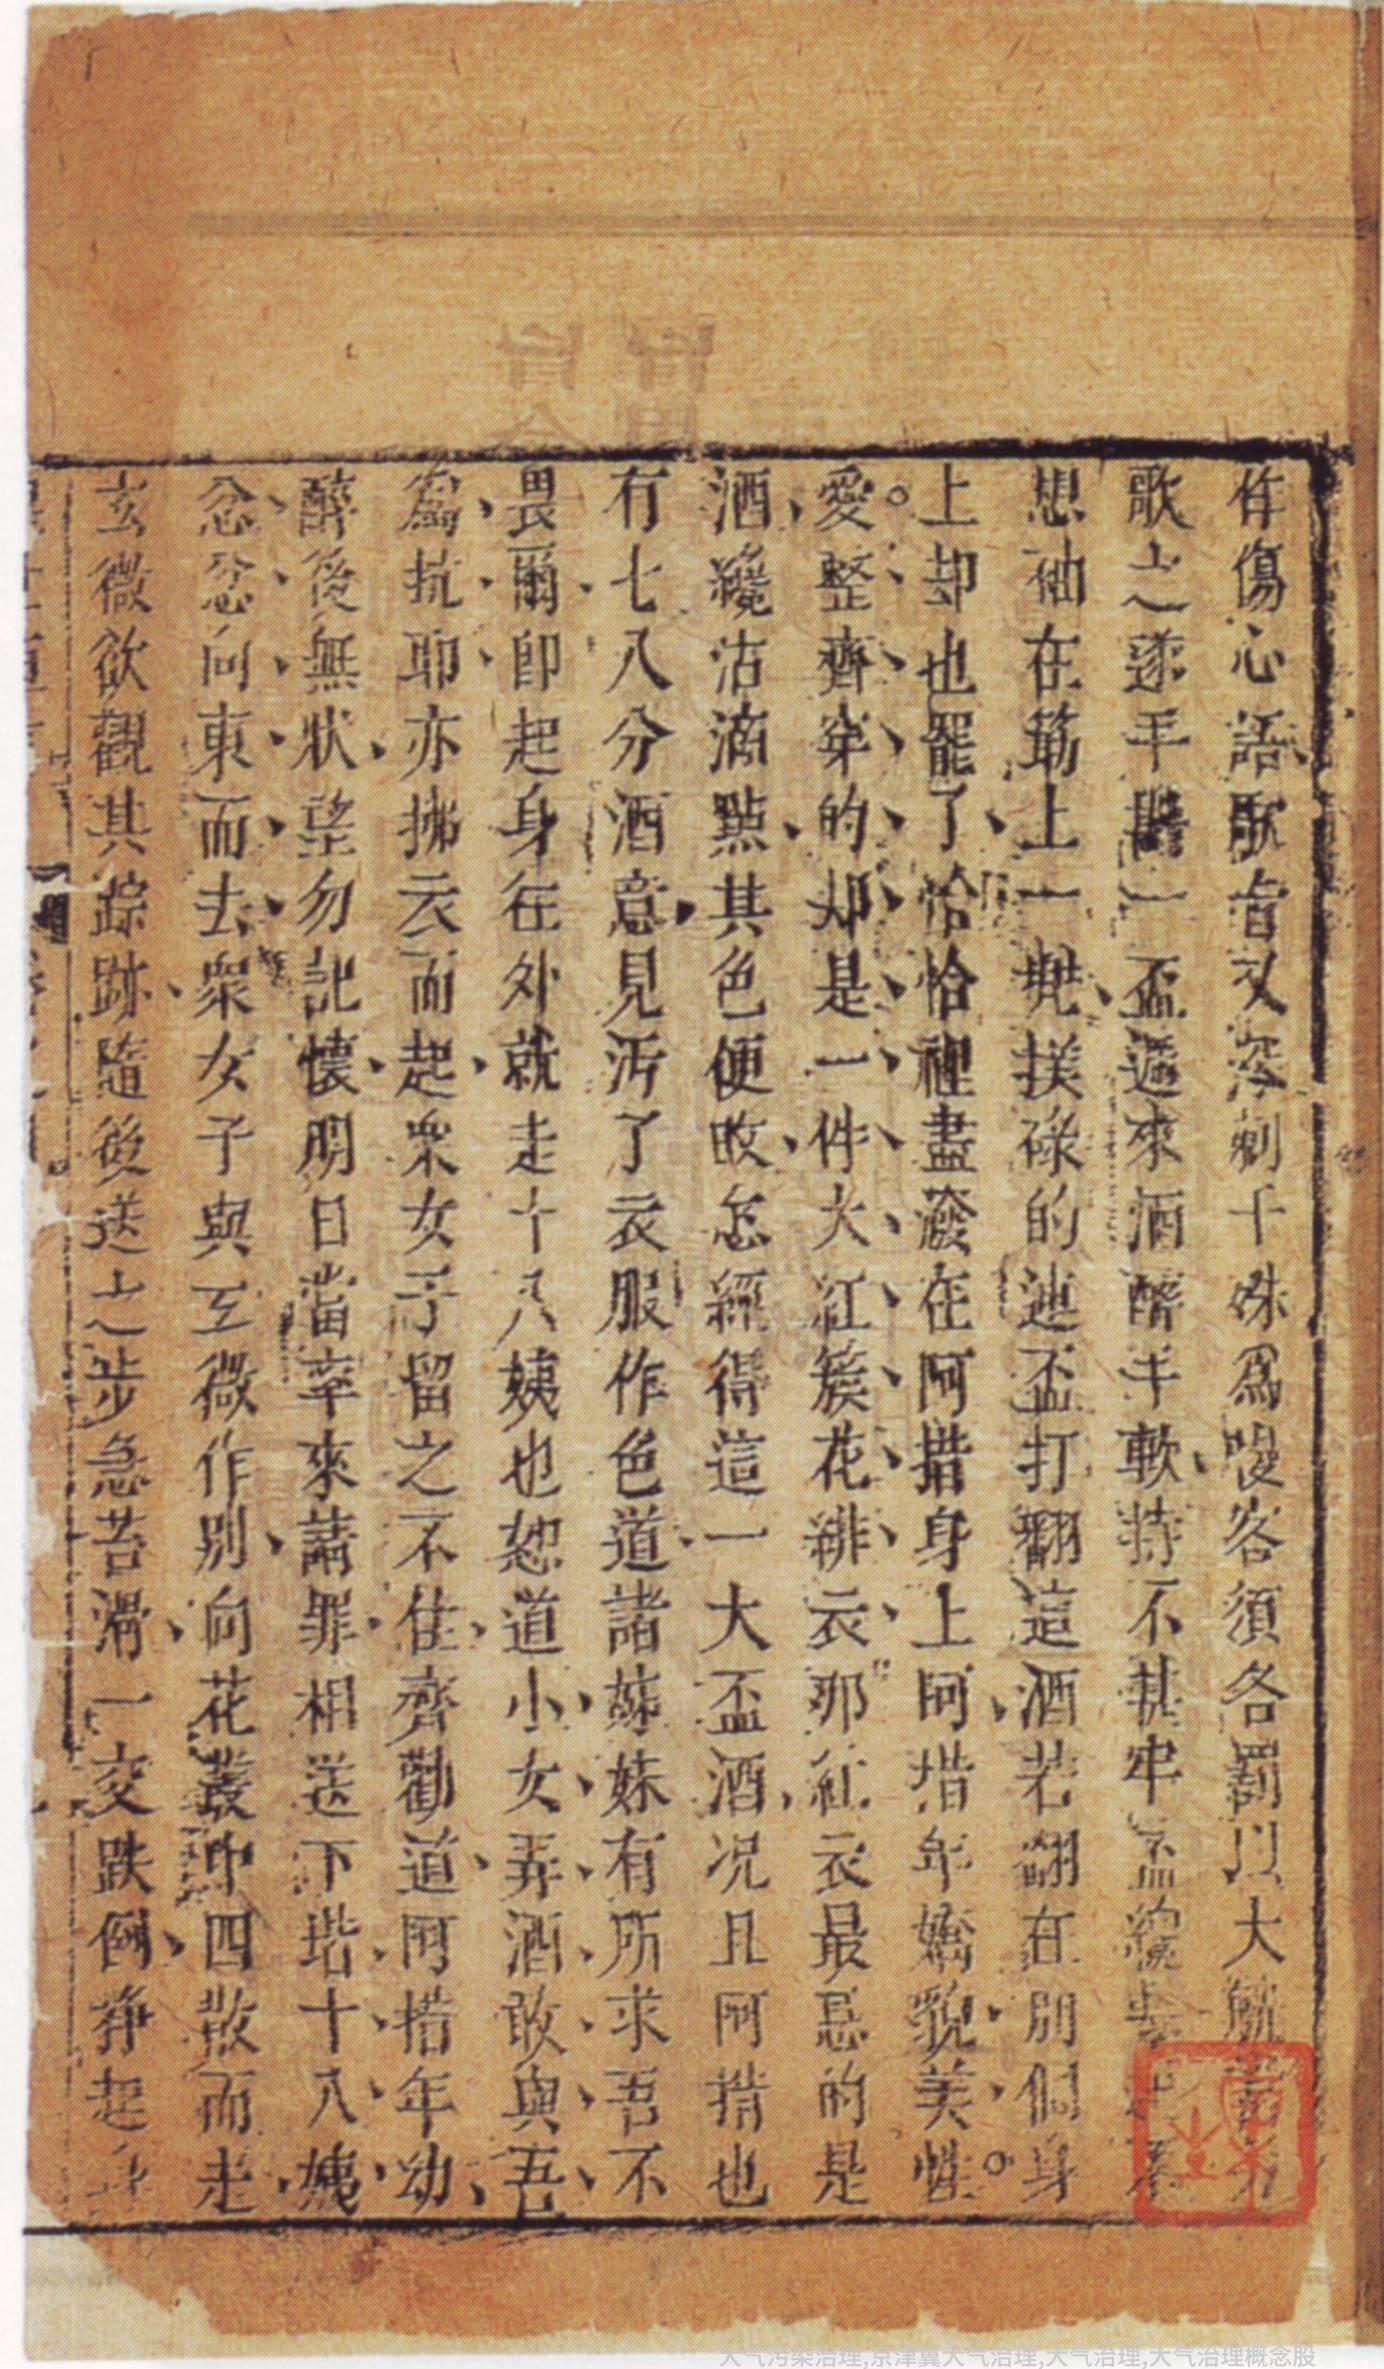 作傷心語歌旨又深刺于姝爲嫚客須各罰以大觥當
歌之遂手斟一盃遞來酒醉手軟持不甚牢盃纔
想袖在筯上一兜撲碌的連盃打翻這酒若翻在別個身
上却也罷了恰恰裡盡潑在阿措身上阿措年嬌貌美性
愛整齊穿的却是一件大紅簇花緋衣那紅衣最忌的是
酒纔沾滴點其色便敗怎經得這一大盃酒况且阿措也
有七八分酒意見汚了衣服作色道諸姊妹有所求吾不
畏爾卽起身往外就走十八姨也怒道小女弄酒敢與吾
爲抗耶亦拂衣而起衆女子留之不住齊勸道阿措年幼
醉後無狀望勿記懷明日當率來請罪相送下堦十八姨
忿忿向東而去衆女子與玄微作別向花叢中四散而走
玄微欲觀其踪跡隨後送之步急苔滑一交跌倒掙起身
大气污染治理,京津冀大气治理,大气治理,大气治理概念股